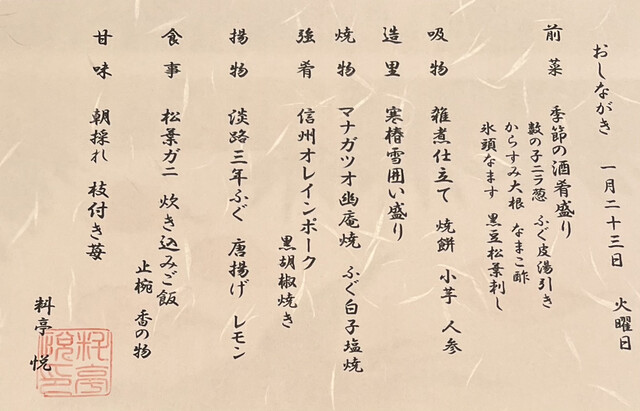 おしながき 一月二十三日 火曜日
前菜 季節の酒肴盛り
数の子ニラ葱 ふぐ皮湯引き
からすみ大根 なまこ酢
氷頭なます 黒豆松葉刺し
吸物 雑煮仕立て 焼餅 小芋 人参
造里 寒椿雪囲い盛り
焼物 マナガツオ幽庵焼 ふぐ白子塩焼
強肴 信州オレインポーク
黒胡椒焼き
揚物 淡路三年ふぐ 唐揚げ レモン
食事 松葉ガニ 炊き込みご飯
止椀 香の物
甘味 朝採れ 枝付き苺
料亭 悦